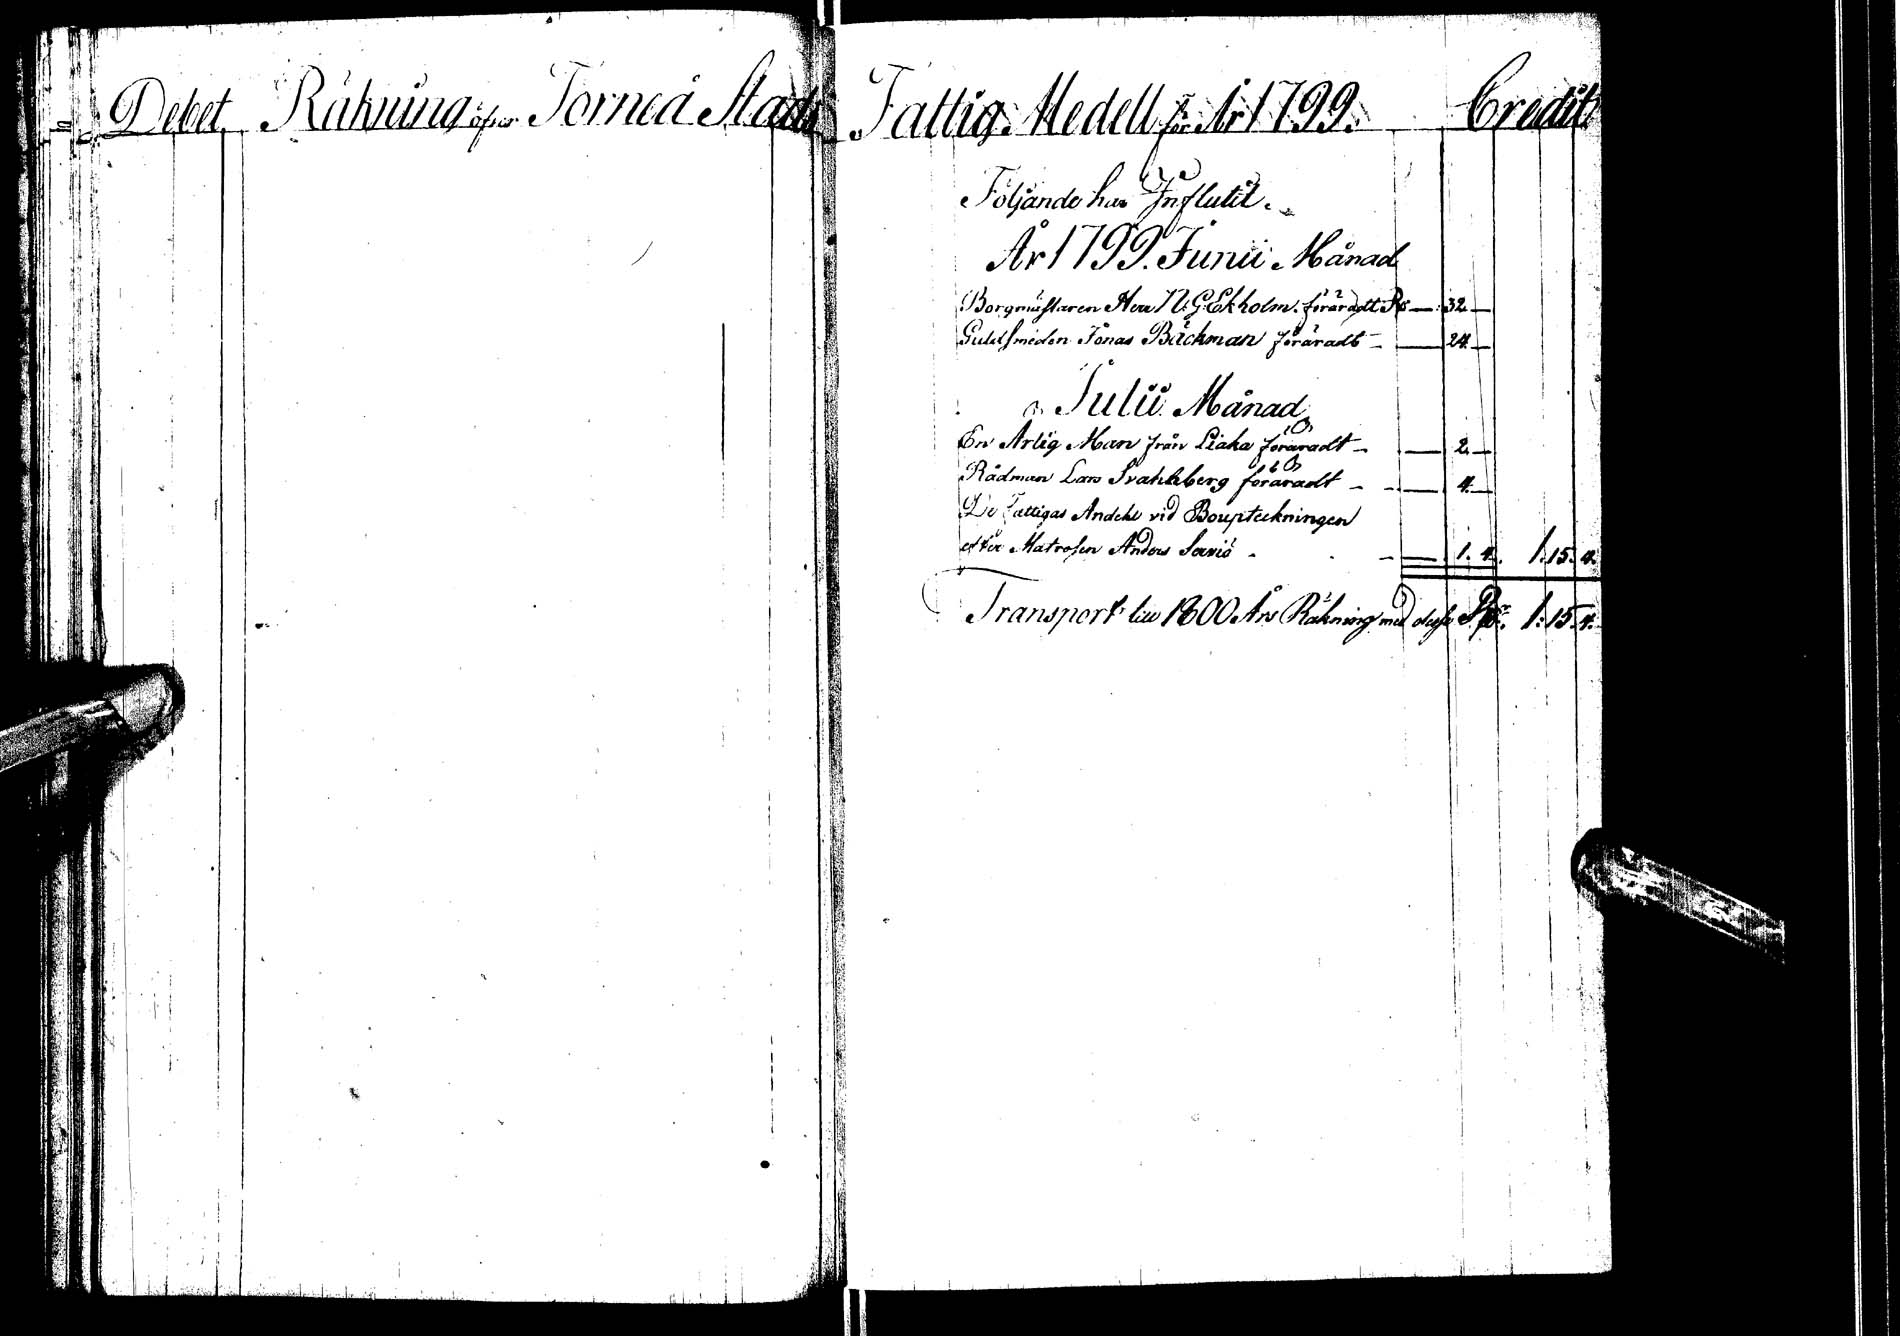 Debet Räkning öfver Torneå Stads Fattig Medell för År 1799. Credit
Följande har Influtit.
År 1799. Junii Månad
Borgmästaren Herr N: G: Ekholm. föräradt Rd — 32 —
Guldsmeden Jonas Bäckman föräradt — — 24 —
Julii Månad
En Ärlig Man från Liaka föräradt — — 2 —
Rådman Lars Svahnberg föräradt — — 4 —
De Fattigas Andehl vid Boupteckningen
efter Matrosen Anders Serviö — 1. 4. 1. 15. 4.
Transport till 1800 Års Räkning med desse Rd 1: 15. 4.